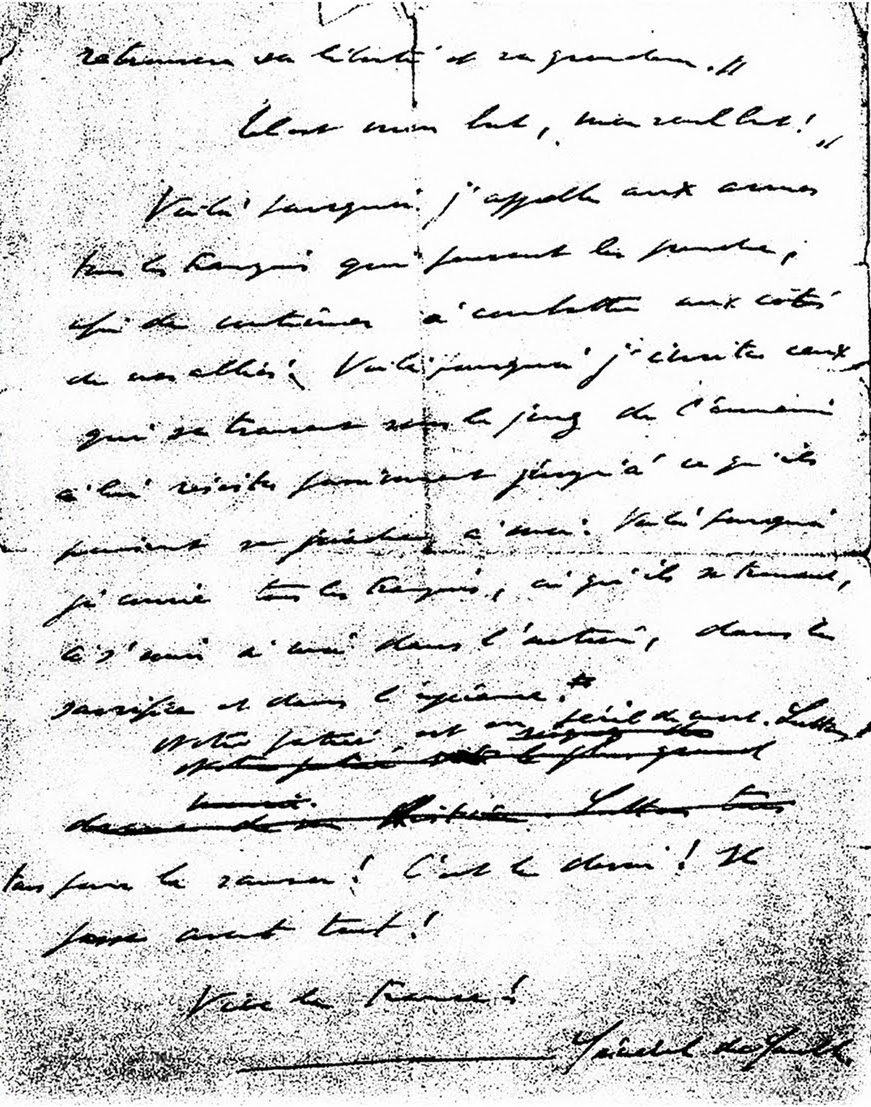 retrouvera sa liberté et sa grandeur.
Tel est mon but, mon seul but!
Voilà pourquoi j'appelle aux armes
tous les Français qui peuvent les prendre,
afin de continuer à combattre aux côtés
de nos alliés. Voilà pourquoi j'invite ceux
qui se trouvent sous le joug de l'ennemi
à lui résister passivement jusqu'à ce qu'ils
puissent se joindre à moi. Voilà pourquoi
je convie tous les Français, où qu'ils se trouvent,
à s'unir à moi dans l'action, dans le
sacrifice et dans l'espérance.*
Notre patrie est en péril de mort. Luttons
Notre patrie le plus grand
de son histoire. Luttons tous
tous pour la sauver! C'est le devoir! Il
passe avant tout!
Vive la France!
Général de Gaulle